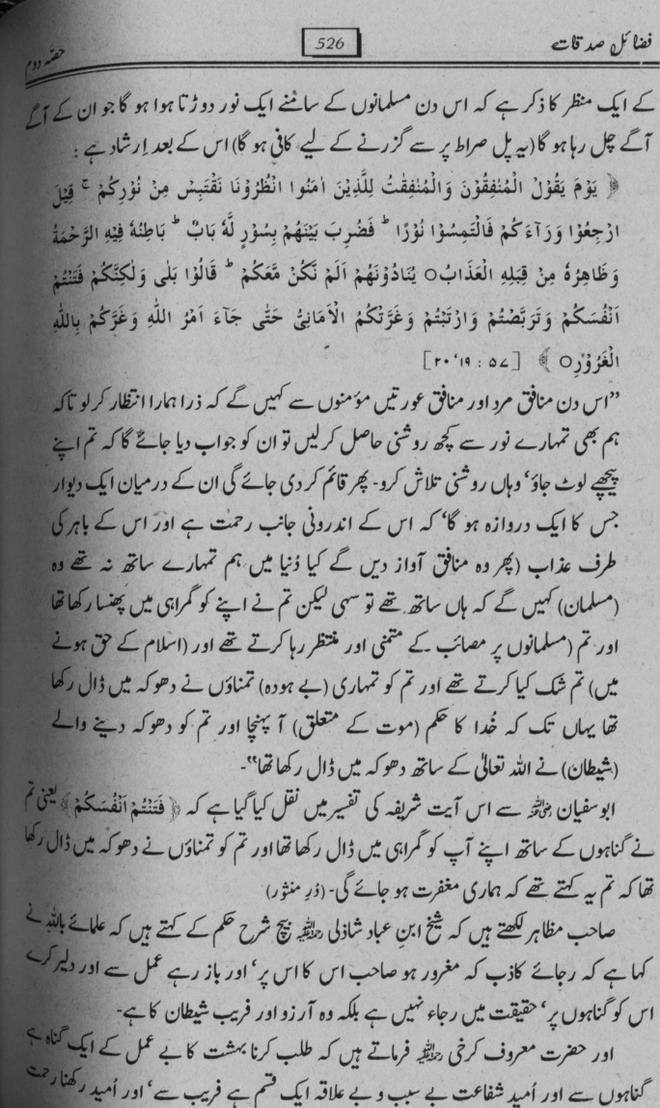 فضائل صدقات
526
حصّہ دوم
کے ایک منظر کا ذکر ہے کہ اس دن مسلمانوں کے سامنے ایک نور دوڑتا ہوا ہو گا جو ان کے آگے
آگے چل رہا ہو گا (یہ پل صراط پر سے گزرنے کے لیے کافی ہو گا) اس کے بعد اِرشاد ہے :
﴿ یَوْمَ یَقُوْلُ الْمُنٰفِقُوْنَ وَالْمُنٰفِقٰتُ لِلَّذِیْنَ اٰمَنُوا انْظُرُوْنَا نَقْتَبِسْ مِنْ نُّوْرِكُمْ ۚ قِیْلَ
ارْجِعُوْا وَرَآءَكُمْ فَالْتَمِسُوْا نُوْرًا ؕ فَضُرِبَ بَیْنَهُمْ بِسُوْرٍ لَّهٗ بَابٌ ؕ بَاطِنُهٗ فِیْهِ الرَّحْمَةُ
وَظَاهِرُهٗ مِنْ قِبَلِهِ الْعَذَابُ○ یُنَادُوْنَهُمْ اَلَمْ نَكُنْ مَّعَكُمْ ؕ قَالُوْا بَلٰی وَلٰكِنَّكُمْ فَتَنْتُمْ
اَنْفُسَكُمْ وَتَرَبَّصْتُمْ وَارْتَبْتُمْ وَغَرَّتْكُمُ الْاَمَانِیُّ حَتّٰی جَآءَ اَمْرُ اللّٰهِ وَغَرَّكُمْ بِاللّٰهِ
الْغَرُوْرُ○ ﴾ [۵۷ : ۱۹‘ ۲۰]
”اس دن منافق مرد اور منافق عورتیں مؤمنوں سے کہیں گے کہ ذرا ہمارا انتظار کر لو تاکہ
ہم بھی تمہارے نور سے کچھ روشنی حاصل کر لیں تو ان کو جواب دیا جائے گا کہ تم اپنے
پیچھے لوٹ جاؤ‘ وہاں روشنی تلاش کرو۔ پھر قائم کر دی جائے گی ان کے درمیان ایک دیوار
جس کا ایک دروازہ ہو گا‘ کہ اس کے اندرونی جانب رحمت ہے اور اس کے باہر کی
طرف عذاب (پھر وہ منافق آواز دیں گے کیا دُنیا میں ہم تمہارے ساتھ نہ تھے وہ
(مسلمان) کہیں گے کہ ہاں ساتھ تھے تو سہی لیکن تم نے اپنے کو گمراہی میں پھنسا رکھا تھا
اور تم (مسلمانوں پر مصائب کے متمنی اور منتظر رہا کرتے تھے اور (اسلام کے حق ہونے
میں) تم شک کیا کرتے تھے اور تم کو تمہاری (بے ہودہ) تمناؤں نے دھوکہ میں ڈال رکھا
تھا یہاں تک کہ خُدا کا حکم (موت کے متعلق) آ پہنچا اور تم کو دھوکہ دینے والے
(شیطان) نے اللہ تعالیٰ کے ساتھ دھوکہ میں ڈال رکھا تھا“۔
ابو سفیان ؓ سے اس آیت شریفہ کی تفسیر میں نقل کیا گیا ہے کہ ﴿ فَتَنْتُمْ اَنْفُسَكُمْ ﴾ یعنی تم
نے گناہوں کے ساتھ اپنے آپ کو گمراہی میں ڈال رکھا تھا اور تم کو تمناؤں نے دھوکہ میں ڈال رکھا
تھا کہ تم یہ کہتے تھے کہ ہماری مغفرت ہو جائے گی۔ (دُرِ منثور)
صاحب مظاہر لکھتے ہیں کہ شیخ ابنِ عباد شاذلی ؒ بیچ شرح حکم کے کہتے ہیں کہ علمائے باللہ نے
کہا ہے کہ رجائے کاذب کہ مغرور ہو صاحب اس کا اس پر‘ اور باز رہے عمل سے اور دلیر کرے
اس کو گناہوں پر‘ حقیقت میں رجاء نہیں ہے بلکہ وہ آرزو اور فریب شیطان کا ہے۔
اور حضرت معروف کرخی ؒ فرماتے ہیں کہ طلب کرنا بہشت کا بے عمل کے ایک گناہ ہے
گناہوں سے اور اُمید شفاعت بے سبب و بے علاقہ ایک قسم ہے فریب سے‘ اور اُمید رکھنا رحمت